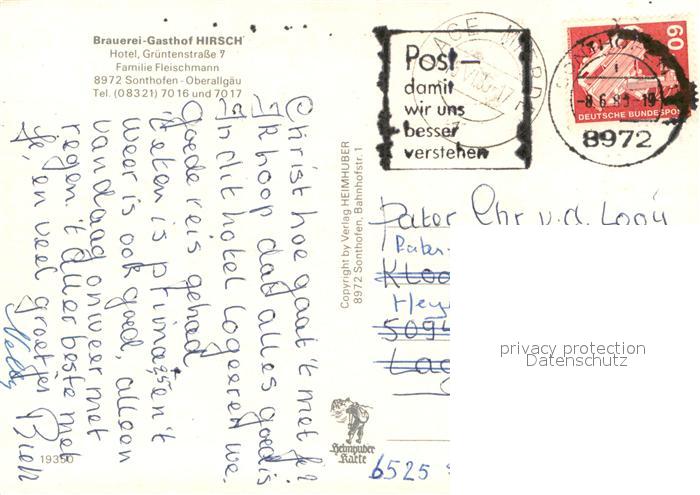 Brauerei-Gasthof HIRSCH
Hotel, Grüntenstraße 7
Familie Fleischmann
8972 Sonthofen-Oberallgäu
Tel. (08321) 7016 und 7017
Christ hoe gaat 't met je!
Ik hoop dat alles goed is
In dit hotel logeeren we.
goede reis gehad
'teten is prima, en 't
weer is ook goed, alleen
vandaag onweer met
regen 't aller beste met
je, en veel groetjes
Nelly
19350
Copyright by Verlag HEIMHUBER
8972 Sonthofen, Bahnhofstr. 1
Heimhuber
Karte
Post-
damit
wir uns
besser
verstehen
SONTHOFEN
-8.6.83-19
8972
60
DEUTSCHE BUNDESPOST
Pater Chr v.d. Looij
Pater-
Kloo
Hey
509
Laa
6525
privacy protection
Datenschutz